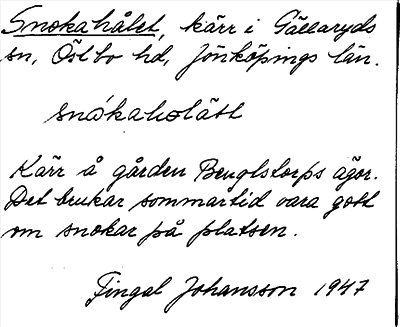 Snokahålet, kärr i Gällaryds
sn, Östbo hd, Jönköpings län.
snókaholätt
Kärr å gården Bengtstorps ägor.
Det brukar sommartid vara gott
om snokar på platsen.
Fingal Johansson 1947